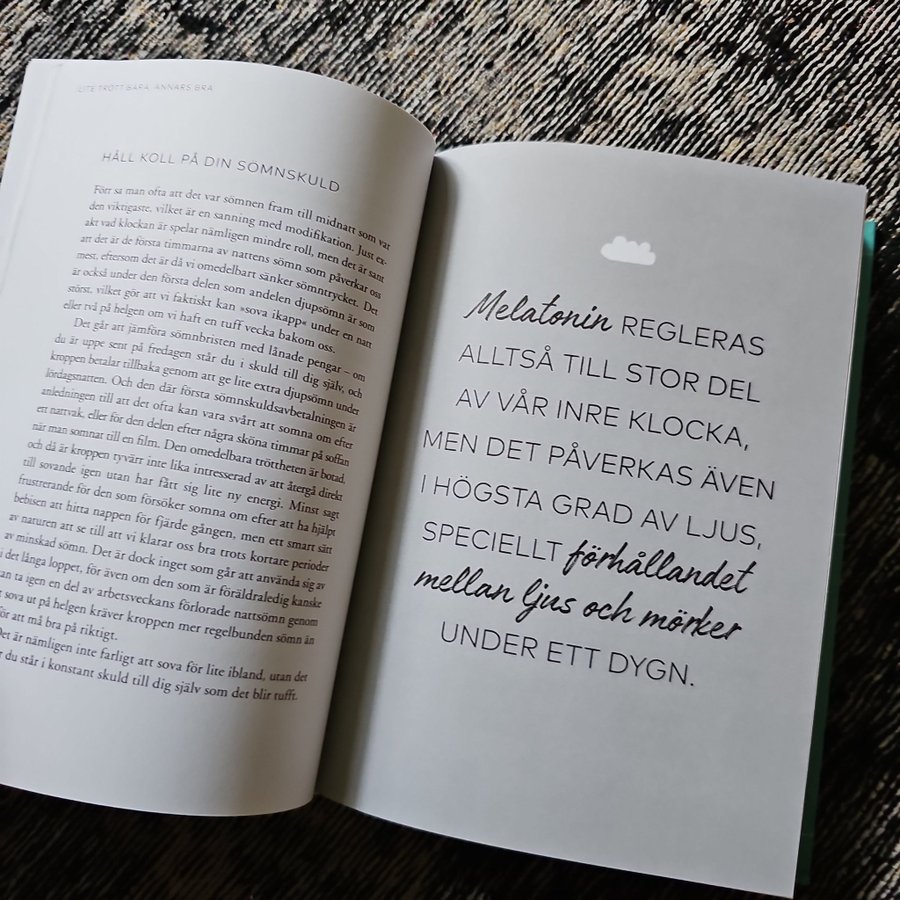 LITE TRÖTT BARA, ANNARS BRA
HÅLL KOLL PÅ DIN SÖMNSKULD
Förr sa man ofta att det var sömnen fram till midnatt som var
den viktigaste, vilket är en sanning med modifikation. Just ex-
akt vad klockan är spelar nämligen mindre roll, men det är sant
att det är de första timmarna av nattens sömn som påverkar oss
mest, eftersom det är då vi omedelbart sänker sömntrycket. Det
är också under den första delen som andelen djupsömn är som
störst, vilket gör att vi faktiskt kan »sova ikapp« under en natt
eller två på helgen om vi haft en tuff vecka bakom oss.
Det går att jämföra sömnbristen med lånade pengar – om
du är uppe sent på fredagen står du i skuld till dig själv, och
kroppen betalar tillbaka genom att ge lite extra djupsömn under
lördagsnatten. Och den där första sömnskuldsavbetalningen är
anledningen till att det ofta kan vara svårt att somna om efter
ett nattvak, eller för den delen efter några sköna timmar på soffan
när man somnat till en film. Den omedelbara tröttheten är botad,
och då är kroppen tyvärr inte lika intresserad av att återgå direkt
till sovande igen utan har fått sig lite ny energi. Minst sagt
frustrerande för den som försöker somna om efter att ha hjälpt
bebisen att hitta nappen för fjärde gången, men ett smart sätt
av naturen att se till att vi klarar oss bra trots kortare perioder
av minskad sömn. Det är dock inget som går att använda sig av
i det långa loppet, för även om den som är föräldraledig kanske
kan ta igen en del av arbetsveckans förlorade nattsömn genom
sova ut på helgen kräver kroppen mer regelbunden sömn än
för att må bra på riktigt.
Det är nämligen inte farligt att sova för lite ibland, utan det
är du står i konstant skuld till dig själv som det blir tufft.
Melatonin REGLERAS
ALLTSÅ TILL STOR DEL
AV VÅR INRE KLOCKA,
MEN DET PÅVERKAS ÄVEN
I HÖGSTA GRAD AV LJUS,
SPECIELLT förhållandet
mellan ljus och mörker
UNDER ETT DYGN.